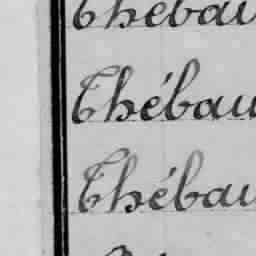 Thébau
Thébau
Thébau